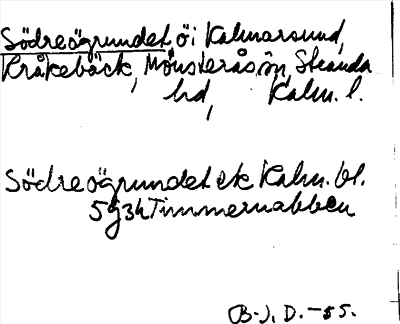 Södreögrundet, ö i Kalmarsund,
Kråkebäck, Mönsterås sn, Stranda
hd, Kalm. l.
Södreögrundet ek Kalm. bl.
5g3h Timmernabben
B-J. D. -55.